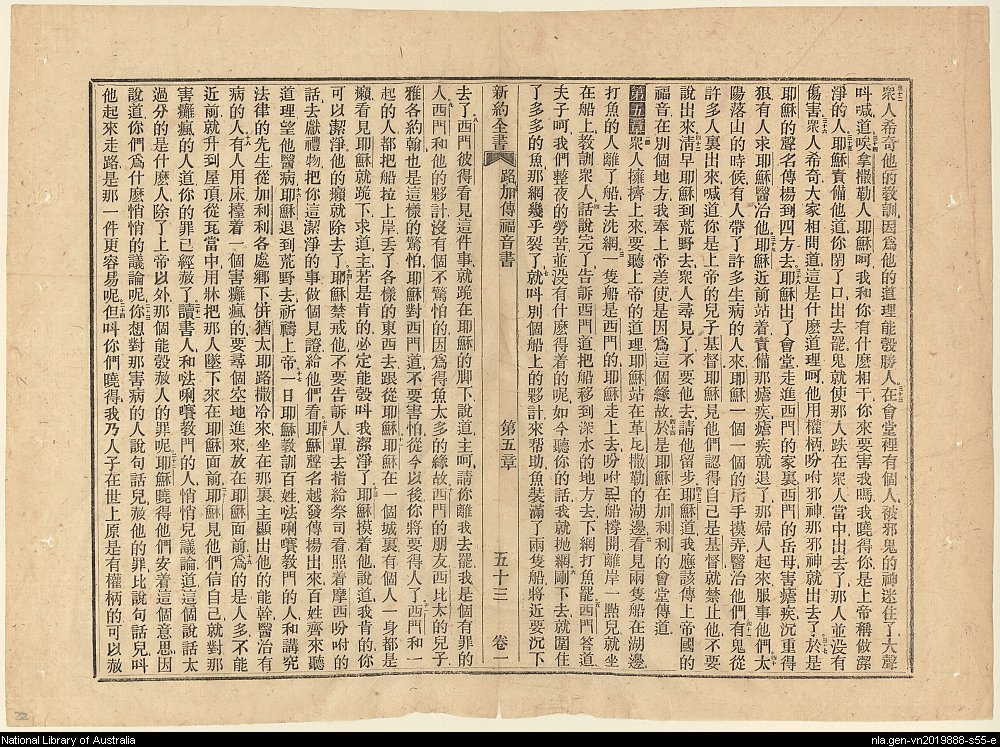 衆人希奇他的教訓因爲他的道理能彀勝人在會堂裡有個人被邪鬼的神迷住了大聲
呌喊道唉拿撒勒人耶穌呵我和你有什麽相干你來要害我嗎我曉得你是上帝稱做潔
淨的人耶穌責備他道你閉了口出去罷鬼就使那人跌在衆人當中出去了那人並沒有
傷害衆人希奇大家相問道這是什麽道理呵他用權柄吩咐邪神那邪神就出去了於是
耶穌的聲名傳揚到四方去耶穌出了會堂走進西門的家裏西門的岳母害瘧疾沉重得
狠有人求耶穌醫治他耶穌近前站着責備那瘧疾瘧疾就退了那婦人起來服事他們太
陽落山的時候有人帶了許多生病的人來耶穌一個一個的用手摸弄醫治他們有鬼從
許多人裏出來喊道你是上帝的兒子基督耶穌見他們認得自己是基督就禁止他不要
說出來淸早耶穌到荒野去衆人尋見了不要他去請他留步耶穌道我應該傳上帝國的
福音在別個地方我奉上帝差使是因爲這個緣故於是耶穌在加利利的會堂傳道
第五章衆人擁擠上來要聽上帝的道理耶穌站在革尼撒勒的湖邊看見兩隻船在湖邊
打魚的人離了船去洗網一隻船是西門的耶穌走上去吩咐把船撐開離岸一點兒就坐
在船上教訓衆人話說完了告訴西門道把船移到深水的地方去下網打魚罷西門答道
夫子呵我們整夜的勞苦並沒有什麽得着的呢如今聽你的話我就抛網剛下去就圍住
了多多的魚那網幾乎裂了就呌別個船上的夥計來帮助魚裝滿了兩隻船將近要沉下
新約全書 路加傳福音書 第五章 五十三 卷一
去了西門彼得看見這件事就跪在耶穌的脚下說道主呵請你離我去罷我是個有罪的
人西門和他的夥計沒有個不驚怕的因爲得魚太多的緣故西門的朋友西比太的兒子
雅各約翰也是這樣的驚怕耶穌對西門道不要害怕從今以後你將要得人了西門和一
起的人都把船拉上岸丢了各樣的東西去跟從耶穌耶穌在一個城裏有個人一身都是
癩看見耶穌就跪下求道主若是肯的必定能彀呌我潔淨了耶穌摸着他說道我肯的你
可以潔淨他的癩就除去了耶穌禁戒他不要告訴人單去指給祭司看照着摩西吩咐的
話去獻禮物把你這潔淨的事做個見證給他們看耶穌聲名越發傳揚出來百姓齊來聽
道理望他醫病耶穌退到荒野去祈禱上帝一日耶穌教訓百姓法唎㘔教門的人和講究
法律的先生從加利利各處鄉下併猶太耶路撒冷來坐在那裏主顯出他的能幹醫治有
病的人有人用床擡着一個害癱瘋的要尋個空地進來放在耶穌面前爲的是人多不能
近前就升到屋頂從瓦當中用牀把那人墜下來在耶穌面前耶穌見他們信自己就對那
害癱瘋的人道你的罪已經赦了讀書人和法唎㘔教門的人悄悄兒議論道這個說話太
過分的是什麽人除了上帝以外那個能彀赦人的罪呢耶穌曉得他們安着這個意思因
說道你們爲什麽悄悄的議論呢你想對那害病的人說句話兒赦他的罪比說句話兒呌
他起來走路是那一件更容易呢但呌你們曉得我乃人子在世上原是有權柄的可以赦
National Library of Australia
nla.gen-vn2019888-s55-e